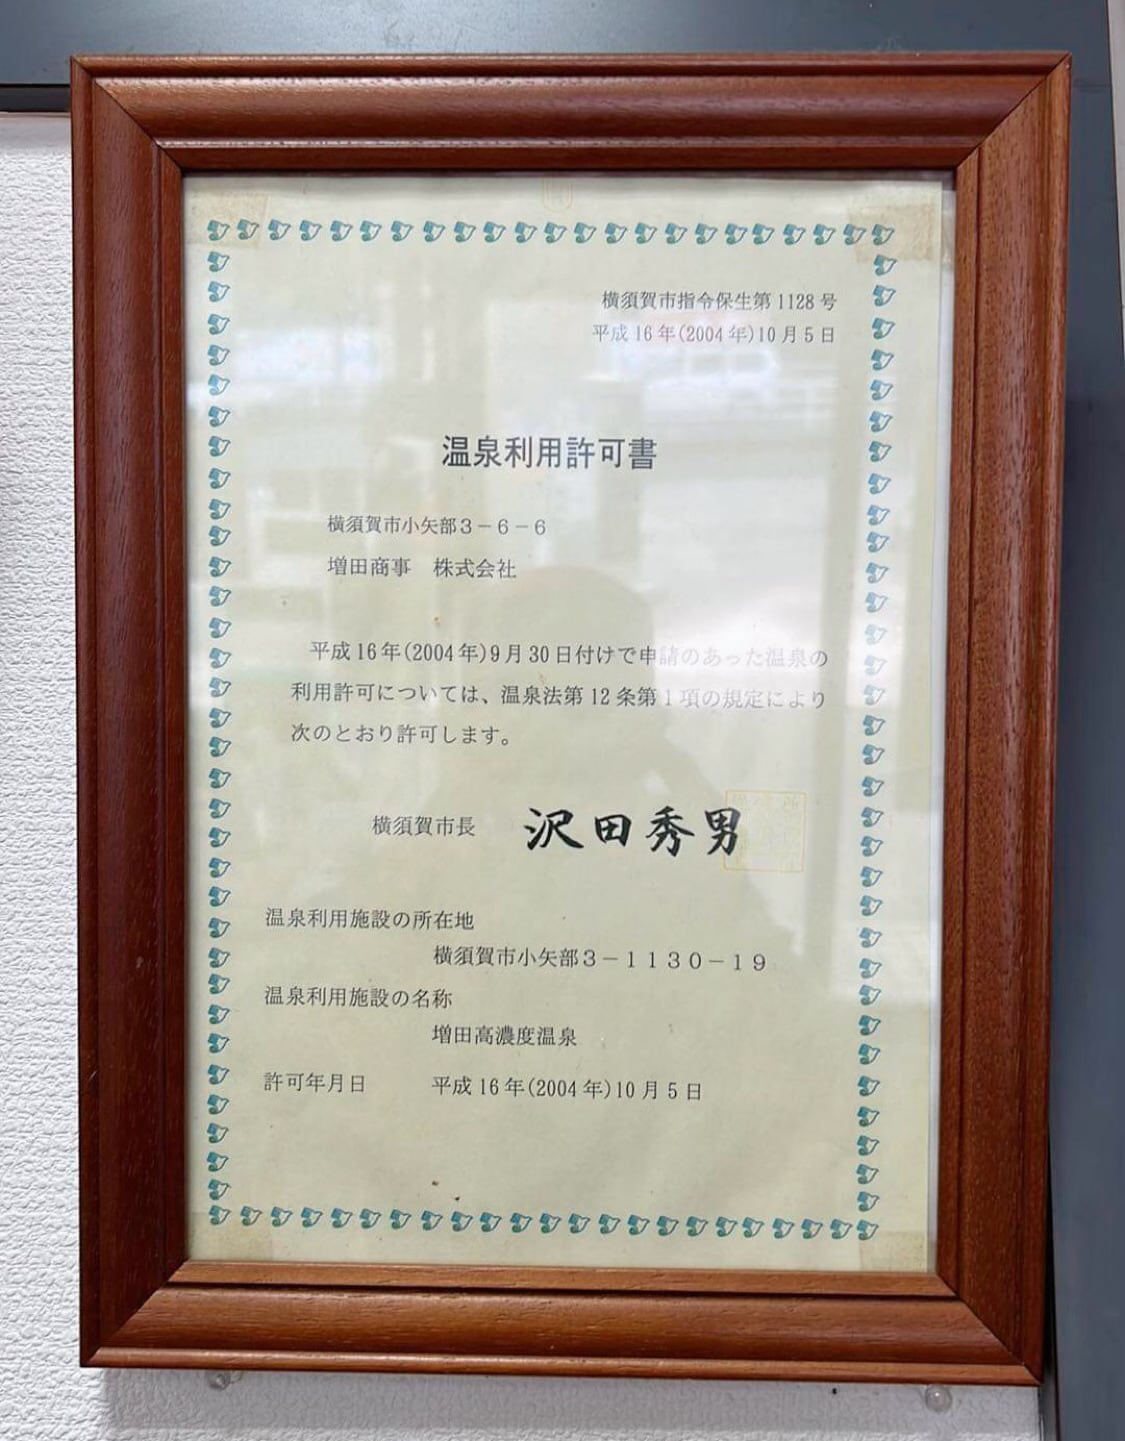 横須賀市指令保生第1128号
平成16年(2004年)10月5日
温泉利用許可書
横須賀市小矢部3－6－6
増田商事　株式会社
平成16年(2004年)9月30日付けで申請のあった温泉の
利用許可については、温泉法第12条第1項の規定により
次のとおり許可します。
横須賀市長　沢田秀男
温泉利用施設の所在地
横須賀市小矢部3－1130－19
温泉利用施設の名称
増田高濃度温泉
許可年月日　平成16年(2004年)10月5日